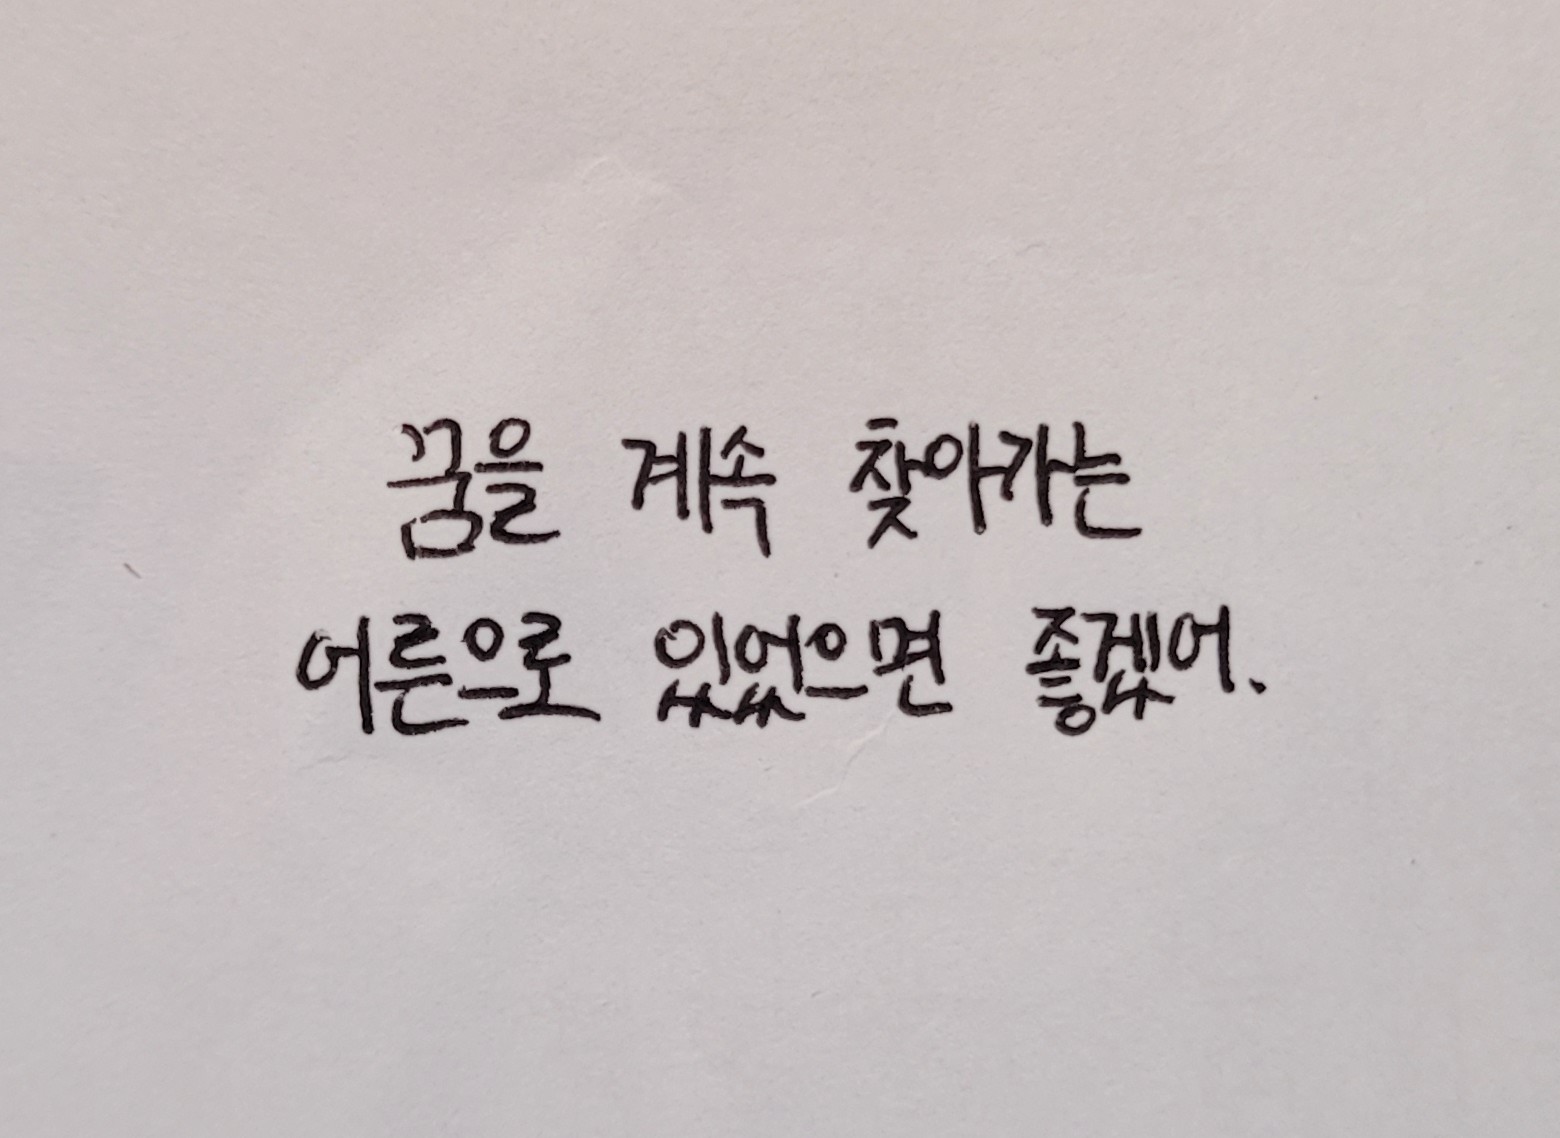 꿈을 계속 찾아가는
어른으로 있었으면 좋겠어.